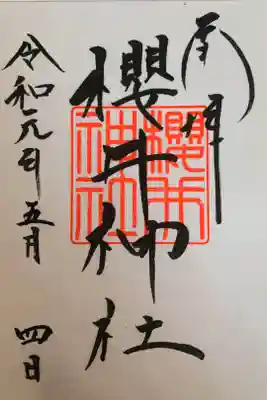 奉拝
櫻井神社
櫻井神社
令和元年五月四日